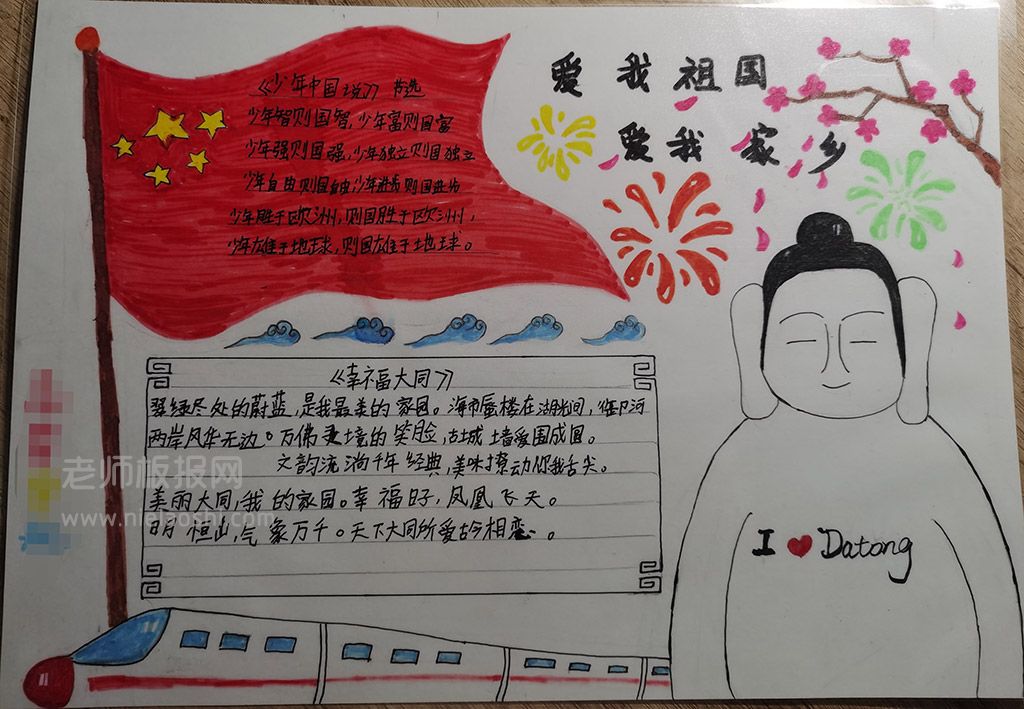 爱我祖国
爱我家乡
《少年中国说》节选
少年智则国智,少年富则国富
少年强则国强,少年独立则国独立
少年自由则国自由,少年进步则国进步
少年胜于欧洲,则国胜于欧洲,
少年雄于地球,则国雄于地球。
《幸福大同》
翠绿尽处的蔚蓝,是我最美的家园。海市蜃楼在湖光间,御河
两岸风华无边。万佛灵境的笑脸,古城墙爱围成圆。
文韵流淌千年经典,美味撩动你我舌尖。
美丽大同,我的家园。幸福日子,凤凰飞天。
日月恒山,气象万千。天下大同所爱古今相恋。
I ❤ Datong
老师板报网
www.nielaoshi.com